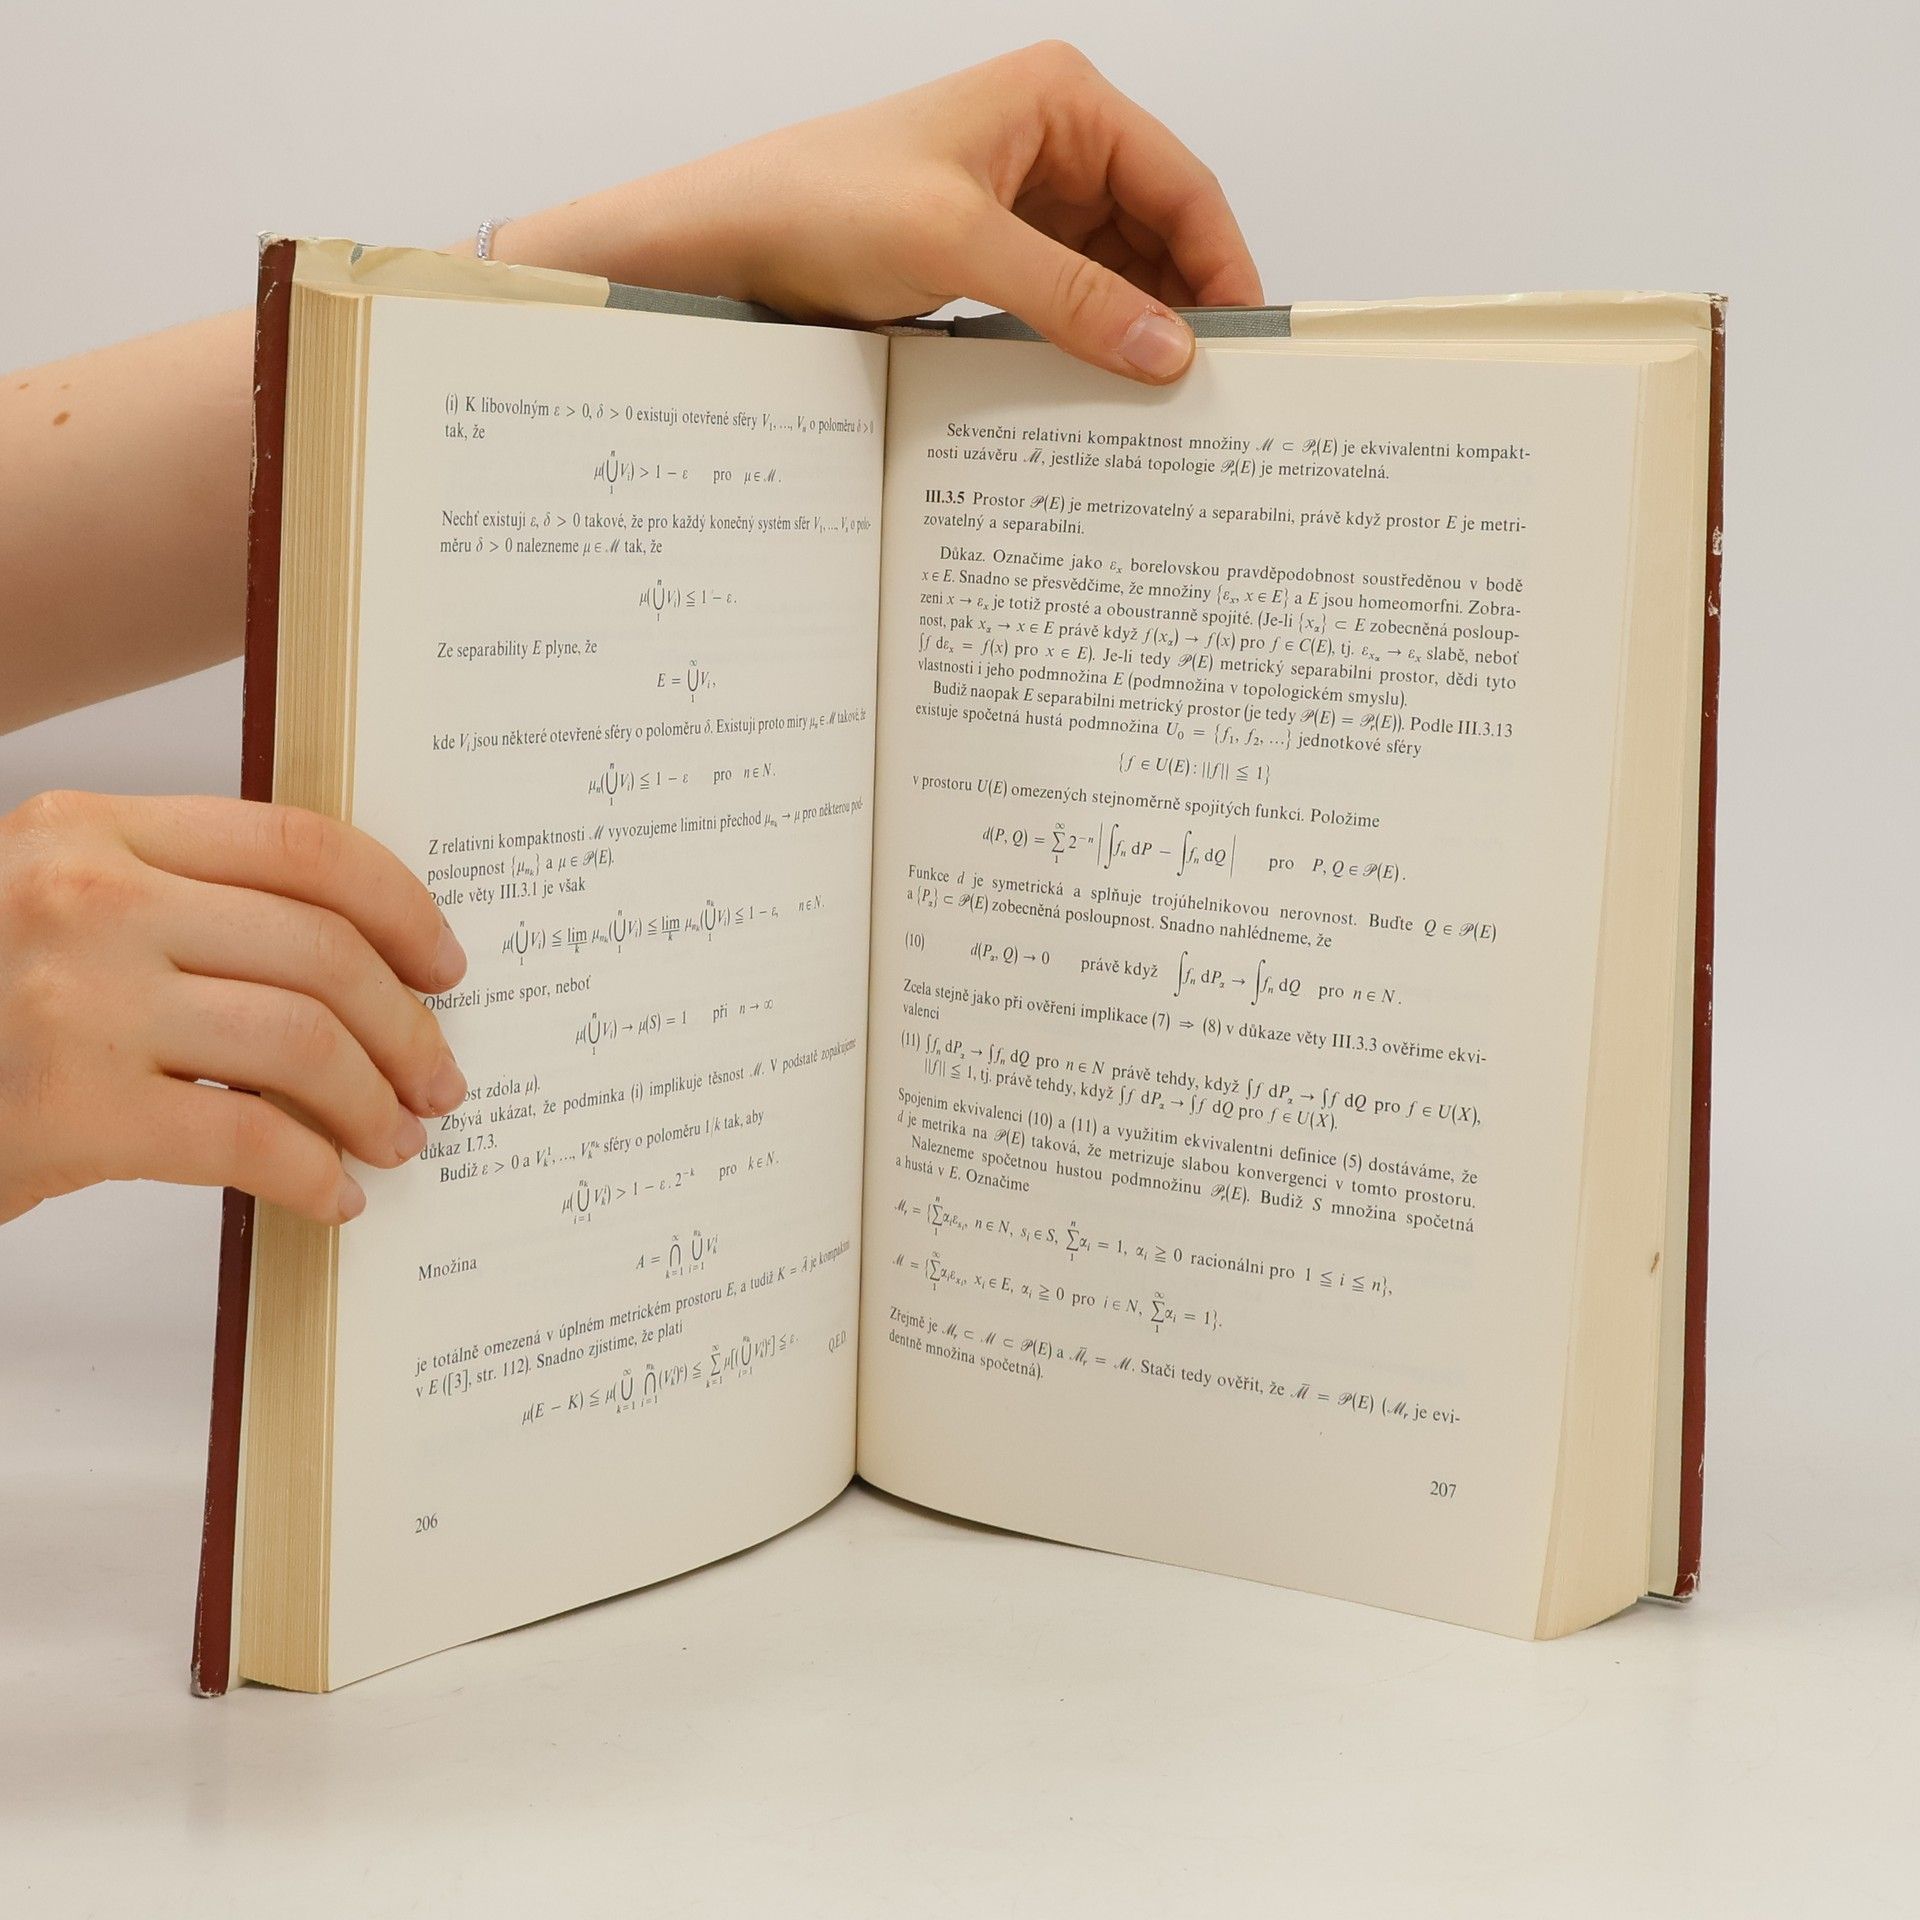 (i) K libovolným ε > 0, δ > 0 existují otevřené sféry V₁, ..., Vₙ o poloměru δ > 0
tak, že
μ(⋃₁ⁿ Vᵢ) > 1 − ε pro μ ∈ ℳ.
Nechť existují ε, δ > 0 takové, že pro každý konečný systém sfér V₁, ..., Vₙ o polo-
měru δ > 0 nalezneme μ ∈ ℳ tak, že
μ(⋃₁ⁿ Vᵢ) ≦ 1 − ε.
Ze separability E plyne, že
E = ⋃₁^∞ Vᵢ,
kde Vᵢ jsou některé otevřené sféry o poloměru δ. Existují proto míry μₙ ∈ ℳ takové, že
μₙ(⋃₁ⁿ Vᵢ) ≦ 1 − ε pro n ∈ N.
Z relativní kompaktnosti ℳ vyvozujeme limitní přechod μ_{n_k} → μ pro některou pod-
posloupnost {μ_{n_k}} a μ ∈ 𝒫(E).
Podle věty III.3.1 je však
μ(⋃₁ⁿ Vᵢ) ≦ lim_k μ_{n_k}(⋃₁ⁿ Vᵢ) ≦ lim_k μ_{n_k}(⋃₁^{n_k} Vᵢ) ≦ 1 − ε, n ∈ N.
Obdrželi jsme spor, neboť
μ(⋃₁ⁿ Vᵢ) → μ(S) = 1 při n → ∞
ost zdola μ).
Zbývá ukázat, že podmínka (i) implikuje těsnost ℳ. V podstatě zopakujeme
důkaz I.7.3.
Budiž ε > 0 a V_k^1, ..., V_k^{n_k} sféry o poloměru 1/k tak, aby
μ(⋃_{i=1}^{n_k} V_k^i) > 1 − ε . 2^{−k} pro k ∈ N.
Množina
A = ⋂_{k=1}^∞ ⋃_{i=1}^{n_k} V_k^i
je totálně omezená v úplném metrickém prostoru E, a tudíž K = Ā je kompaktní
v E ([3], str. 112). Snadno zjistíme, že platí
μ(E − K) ≦ μ(⋃_{k=1}^∞ ⋂_{i=1}^{n_k} (V_k^i)^c) ≦ ∑_{k=1}^∞ μ[(⋃_{i=1}^{n_k} V_k^i)^c] ≦ ε. Q.E.D.
206
Sekvenční relativní kompaktnost množiny ℳ ⊂ 𝒫ᵣ(E) je ekvivalentní kompakt-
nosti uzávěru ℳ̄, jestliže slabá topologie 𝒫ᵣ(E) je metrizovatelná.
III.3.5 Prostor 𝒫(E) je metrizovatelný a separabilní, právě když prostor E je metri-
zovatelný a separabilní.
Důkaz. Označíme jako εₓ borelovskou pravděpodobnost soustředěnou v bodě
x ∈ E. Snadno se přesvědčíme, že množiny {εₓ, x ∈ E} a E jsou homeomorfní. Zobra-
zení x → εₓ je totiž prosté a oboustranně spojité. (Je-li {x_α} ⊂ E zobecněná posloup-
nost, pak x_α → x ∈ E právě když f(x_α) → f(x) pro f ∈ C(E), tj. ε_{x_α} → εₓ slabě, neboť
∫f dεₓ = f(x) pro x ∈ E). Je-li tedy 𝒫(E) metrický separabilní prostor, dědí tyto
vlastnosti i jeho podmnožina E (podmnožina v topologickém smyslu).
Budiž naopak E separabilní metrický prostor (je tedy 𝒫(E) = 𝒫ᵣ(E)). Podle III.3.13
existuje spočetná hustá podmnožina U₀ = {f₁, f₂, ...} jednotkové sféry
{f ∈ U(E) : ||f|| ≦ 1}
v prostoru U(E) omezených stejnoměrně spojitých funkcí. Položíme
d(P, Q) = ∑₁^∞ 2^{−n} |∫fₙ dP − ∫fₙ dQ| pro P, Q ∈ 𝒫(E).
Funkce d je symetrická a splňuje trojúhelníkovou nerovnost. Buďte Q ∈ 𝒫(E)
a {P_α} ⊂ 𝒫(E) zobecněná posloupnost. Snadno nahlédneme, že
(10) d(P_α, Q) → 0 právě když ∫fₙ dP_α → ∫fₙ dQ pro n ∈ N.
Zcela stejně jako při ověření implikace (7) ⇒ (8) v důkaze věty III.3.3 ověříme ekvi-
valenci
(11) ∫fₙ dP_α → ∫fₙ dQ pro n ∈ N právě tehdy, když ∫f dP_α → ∫f dQ pro f ∈ U(X),
||f|| ≦ 1, tj. právě tehdy, když ∫f dP_α → ∫f dQ pro f ∈ U(X).
Spojením ekvivalencí (10) a (11) a využitím ekvivalentní definice (5) dostáváme, že
d je metrika na 𝒫(E) taková, že metrizuje slabou konvergenci v tomto prostoru.
Nalezneme spočetnou hustou podmnožinu 𝒫ᵣ(E). Budiž S množina spočetná
a hustá v E. Označíme
ℳᵣ = {∑₁ⁿ αᵢε_{sᵢ}, n ∈ N, sᵢ ∈ S, ∑₁ⁿ αᵢ = 1, αᵢ ≧ 0 racionální pro 1 ≦ i ≦ n},
ℳ = {∑₁^∞ αᵢε_{xᵢ}, xᵢ ∈ E, αᵢ ≧ 0 pro i ∈ N, ∑₁^∞ αᵢ = 1}.
Zřejmě je ℳᵣ ⊂ ℳ ⊂ 𝒫(E) a ℳ̄ᵣ = ℳ. Stačí tedy ověřit, že ℳ̄ = 𝒫(E) (ℳᵣ je evi-
dentně množina spočetná).
207